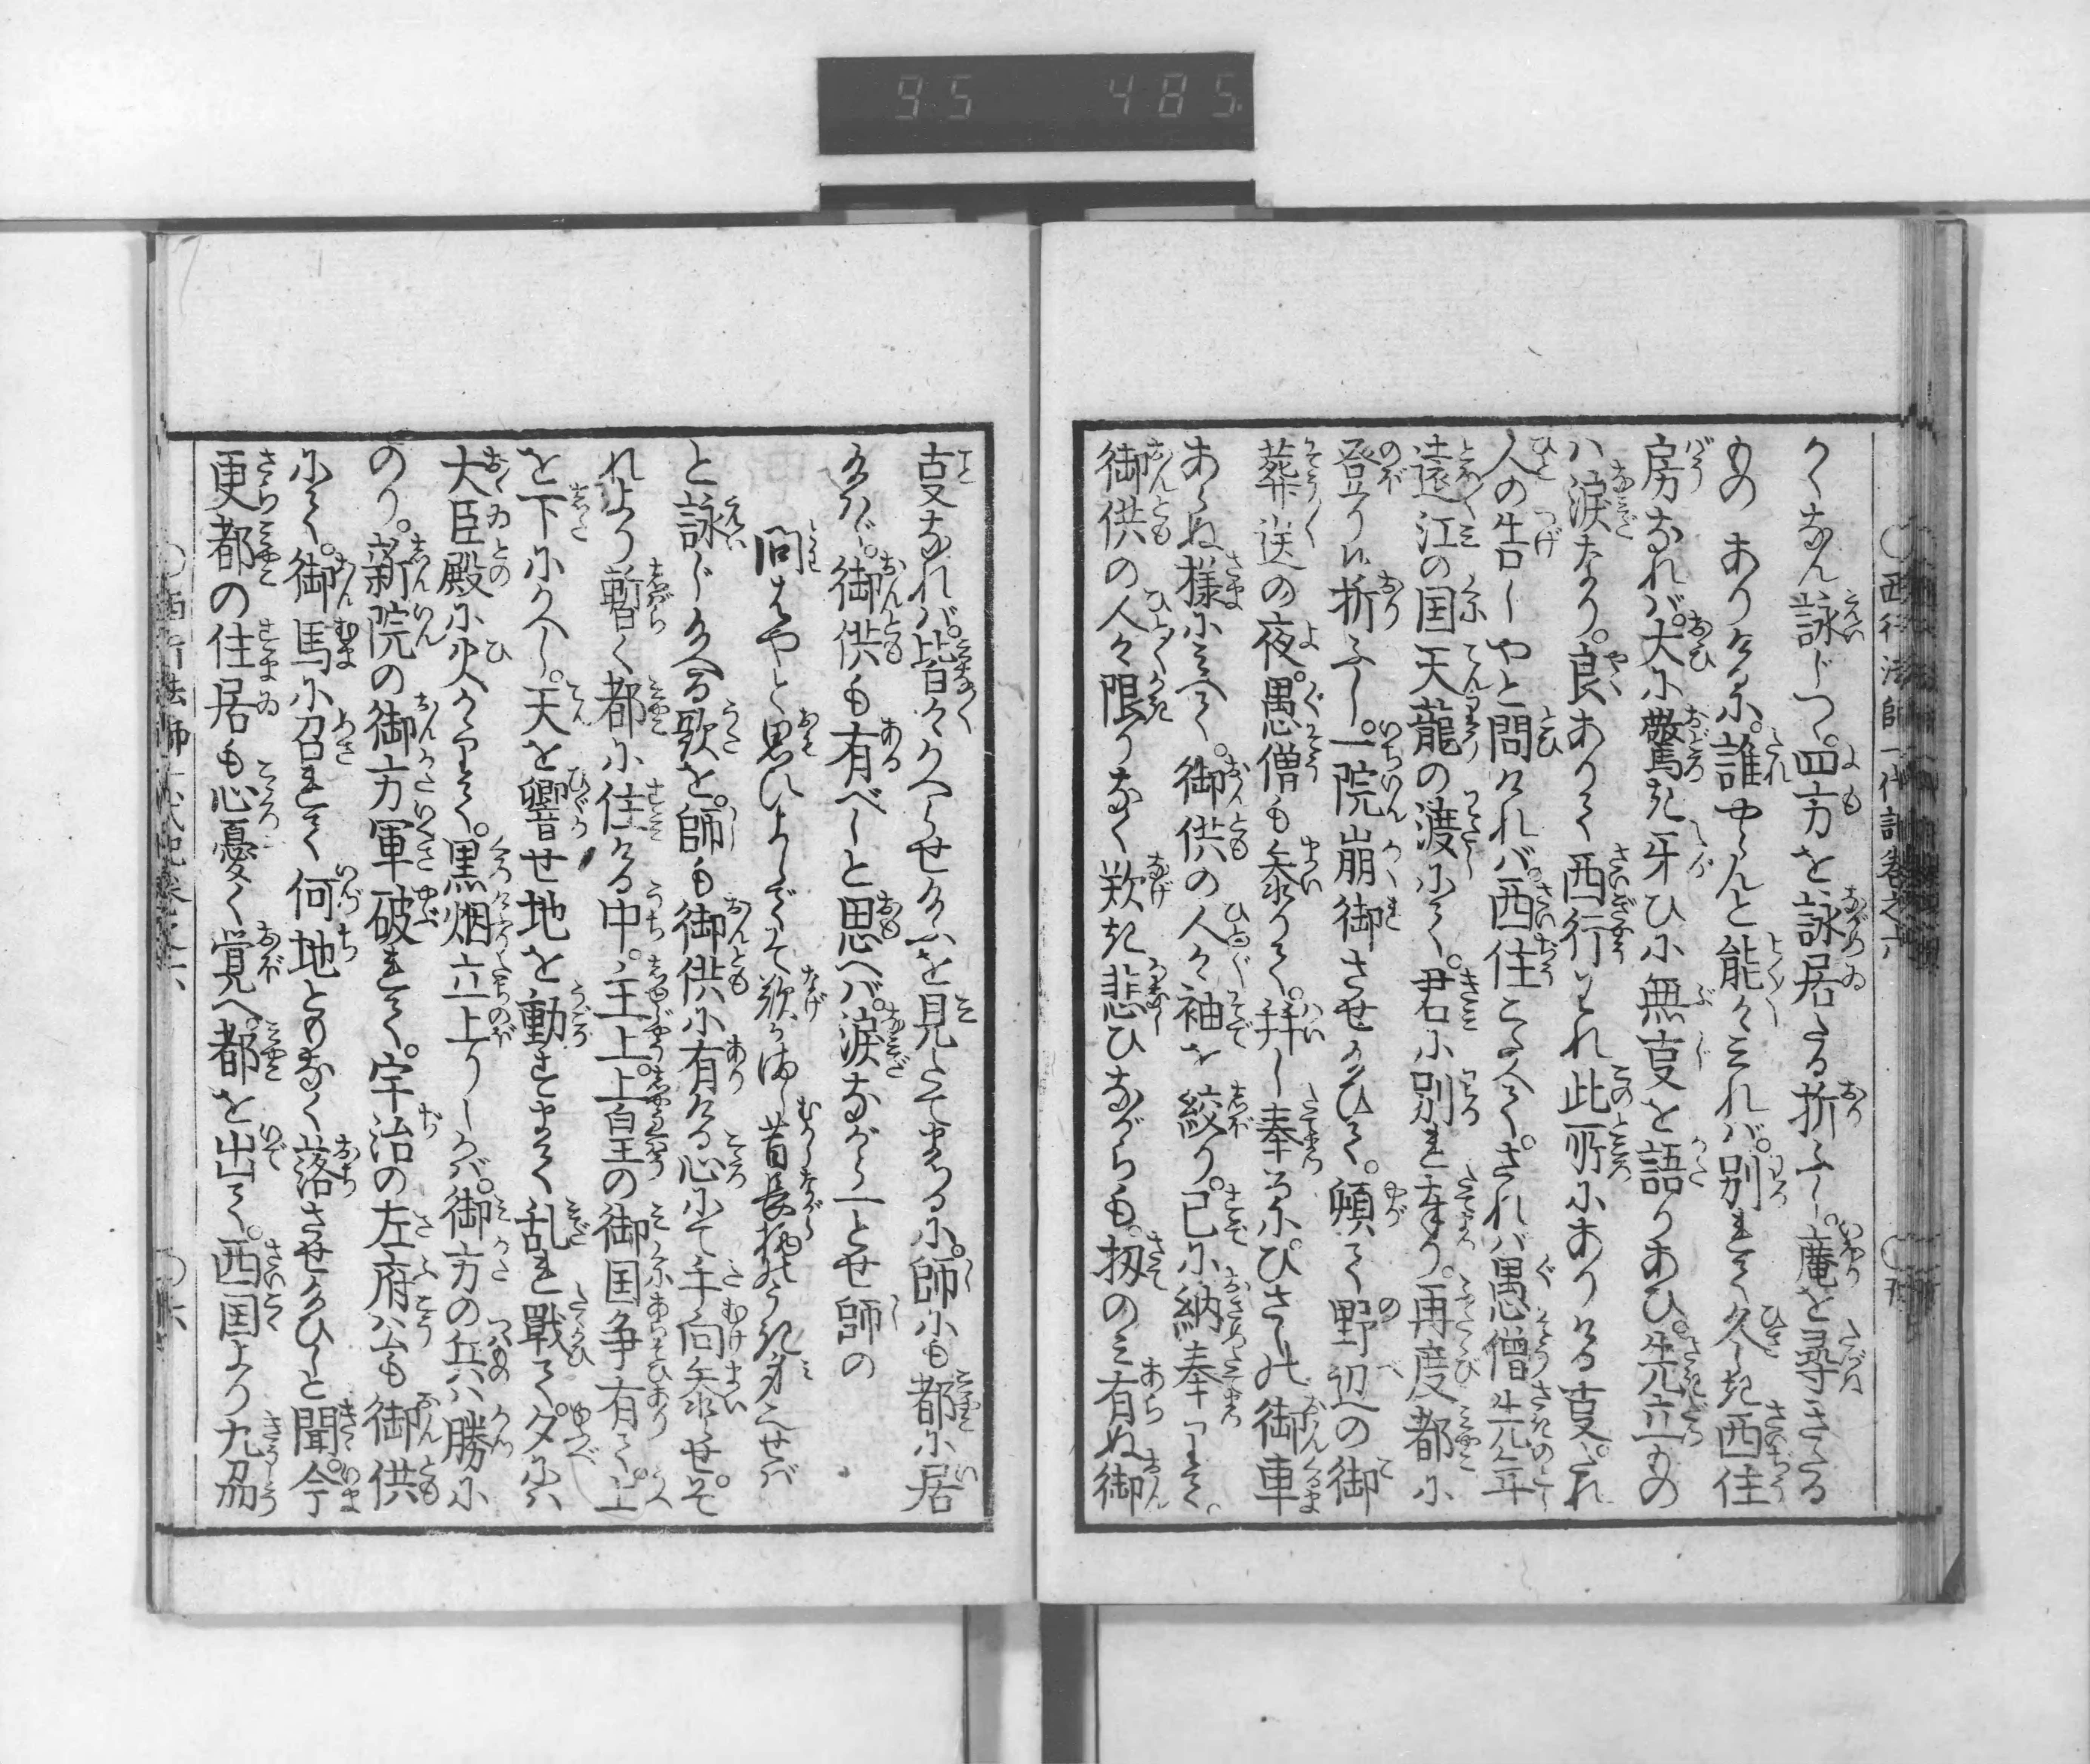 95 485
西行法師一代記巻之六
くなん詠じつゝ四方を詠居たる折ふし。庵を尋きたる
ものありけるに。誰やらんと能々みれバ。別れて久しき西住
房なれバ。大に驚き牙ひに無事を語りあひ。先立もの
ハ涙なり。良ありて西行いわれ此所にありける事。されバ
人の告しやと問けれバ。西住こたへて。されバ愚僧先年
遠江の国天龍の渡にて。君に別れ奉り。再度都に
登りし折ふし。一院崩御させ給ひて。頓て野辺の御
葬送の夜。愚僧も参りて。拝し奉るに。ひさしの御車
あらぬ様にみへて。御供の人々袖を絞り。已に納奉りて。
御供の人々限りなく歎き悲ひながらも。扨のミ有ぬ御
事なれバ。皆々かへらせ給ふを見たてまつるに。師にも都に居
給ハヾ。御供も有べしと思へバ。涙ながら一とせ師の
問はやと思ひよらでぞ歎かまし昔長柄のうき身なりせバ
と詠じ給へる歌を。師も御供に有ける心にて手向参らせ。そ
れより暫く都に住ける中。主上上皇の御国争有て。上
を下にかへし。天を響せ地を動すまて乱れ戦て。夕にハ
大臣殿に火かゝりて。黒烟立上りしかバ。御方の兵ハ勝に
のり。新院の御方軍破れて。宇治の左府公も御供
にて。御馬に召れて何地ともなく落させ給ひしと聞。今
更都の住居も心憂く覚へ。都を出て。西国より九州